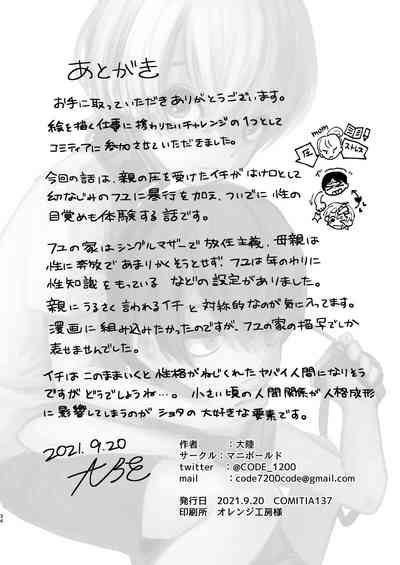 あとがき
お手に取っていただきありがとうございます。
絵を描く仕事に携わりたいチャレンジの1つとして
コミティアに参加させていただきました。
mom
圧
ストレス
今回の話は、親の圧を受けたイチがはけ口として
幼なじみのフユに暴行を加え、ついでに性の
目覚めも体験する話です。
フユの家はシングルマザーで放任主義、母親は
性に奔放であまりかくそうとせず、フユは年のわりに
性知識をもっている などの設定がありました。
親にうるさく言われるイチと対称的なのが気に入ってます。
漫画に組み込みたかったのですが、フユの家の描写でしか
表せませんでした。
イチはこのままいくと性格がねじくれたヤバイ人間になりそう
ですがどうでしょうね…。小さい頃の人間関係が人格成形
に影響してしまうのがショタの大好きな要素です。
2021.9.20
作者 :大陸
サークル:マニボールド
twitter :@CODE_1200
mail :code7200code@gmail.com
発行日 2021.9.20 COMITIA137
印刷所 オレンジ工房様